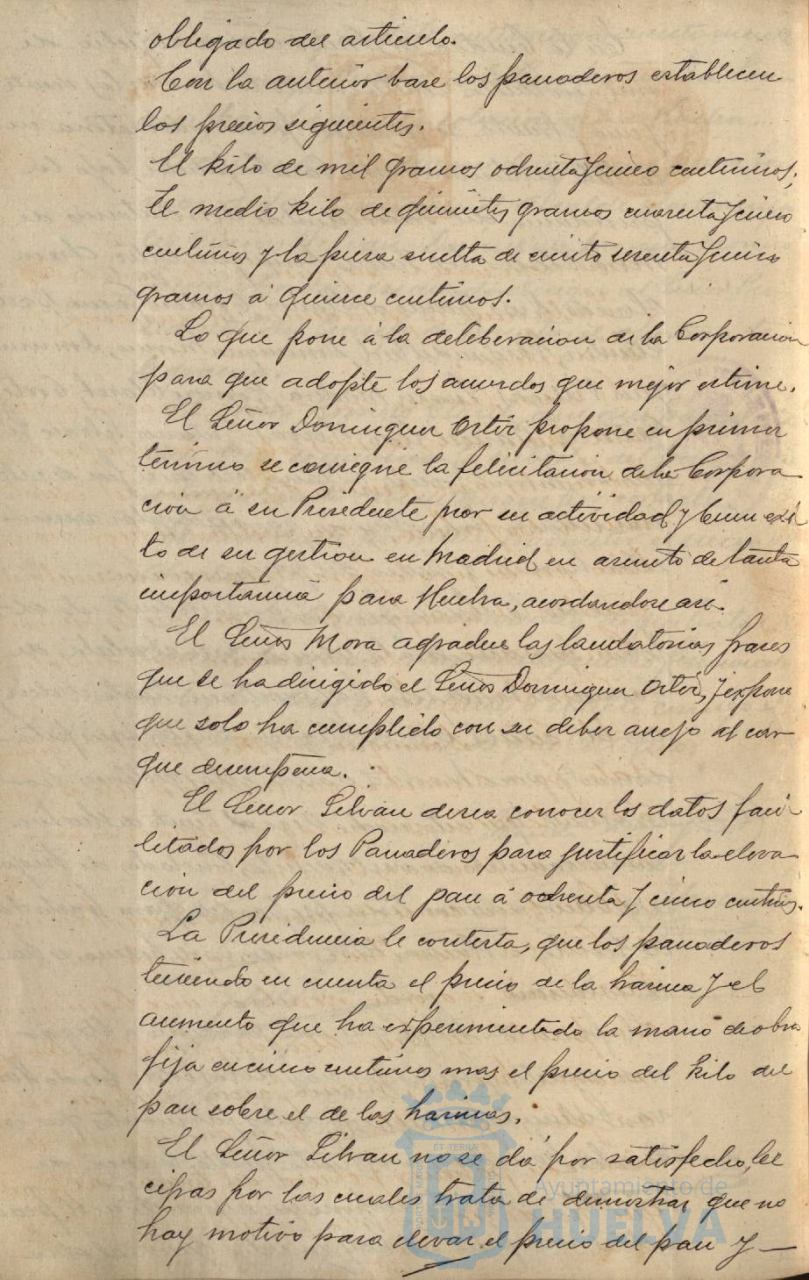 obligado del articulo.
Con la anterior base los panaderos establecen
los precios siguientes.
El kilo de mil gramos ochenta y cinco centimos;
El medio kilo de quinientos gramos cuarenta y cinco
centimos y la pieza suelta de ciento setenta y cinco
gramos á quince centimos.
Lo que pone á la deliberacion de la Corporacion
para que adopte los acuerdos que mejor estime.
El Señor Dominguez Ortiz propone en primer
termino se consigne la felicitacion de la Corpora
cion á su Presidente por su actividad y buen exi
to de su gestion en Madrid en asunto de tanta
importancia para Huelva, acordandose asi.
El Señor Mora agradece las laudatorias frases
que se ha dirigido el Señor Dominguez Ortiz, y expone
que solo ha cumplido con su deber anejo al car
que desempeña.
El Señor Silvan desea conocer los datos faci
litados por los Panaderos para justificar la eleva
cion del precio del pan á ochenta y cinco centims.
La Presidencia le contesta, que los panaderos
teniendo en cuenta el precio de la harina y el
aumento que ha experimentado la mano de obra
fija en cinco centimos mas el precio del kilo del
pan sobre el de las harinas.
El Señor Silvan no se dá por satisfecho, lee
cifras por las cuales trata de demostrar que no
hay motivo para elevar el precio del pan y —
Ayuntamiento de
HUELVA